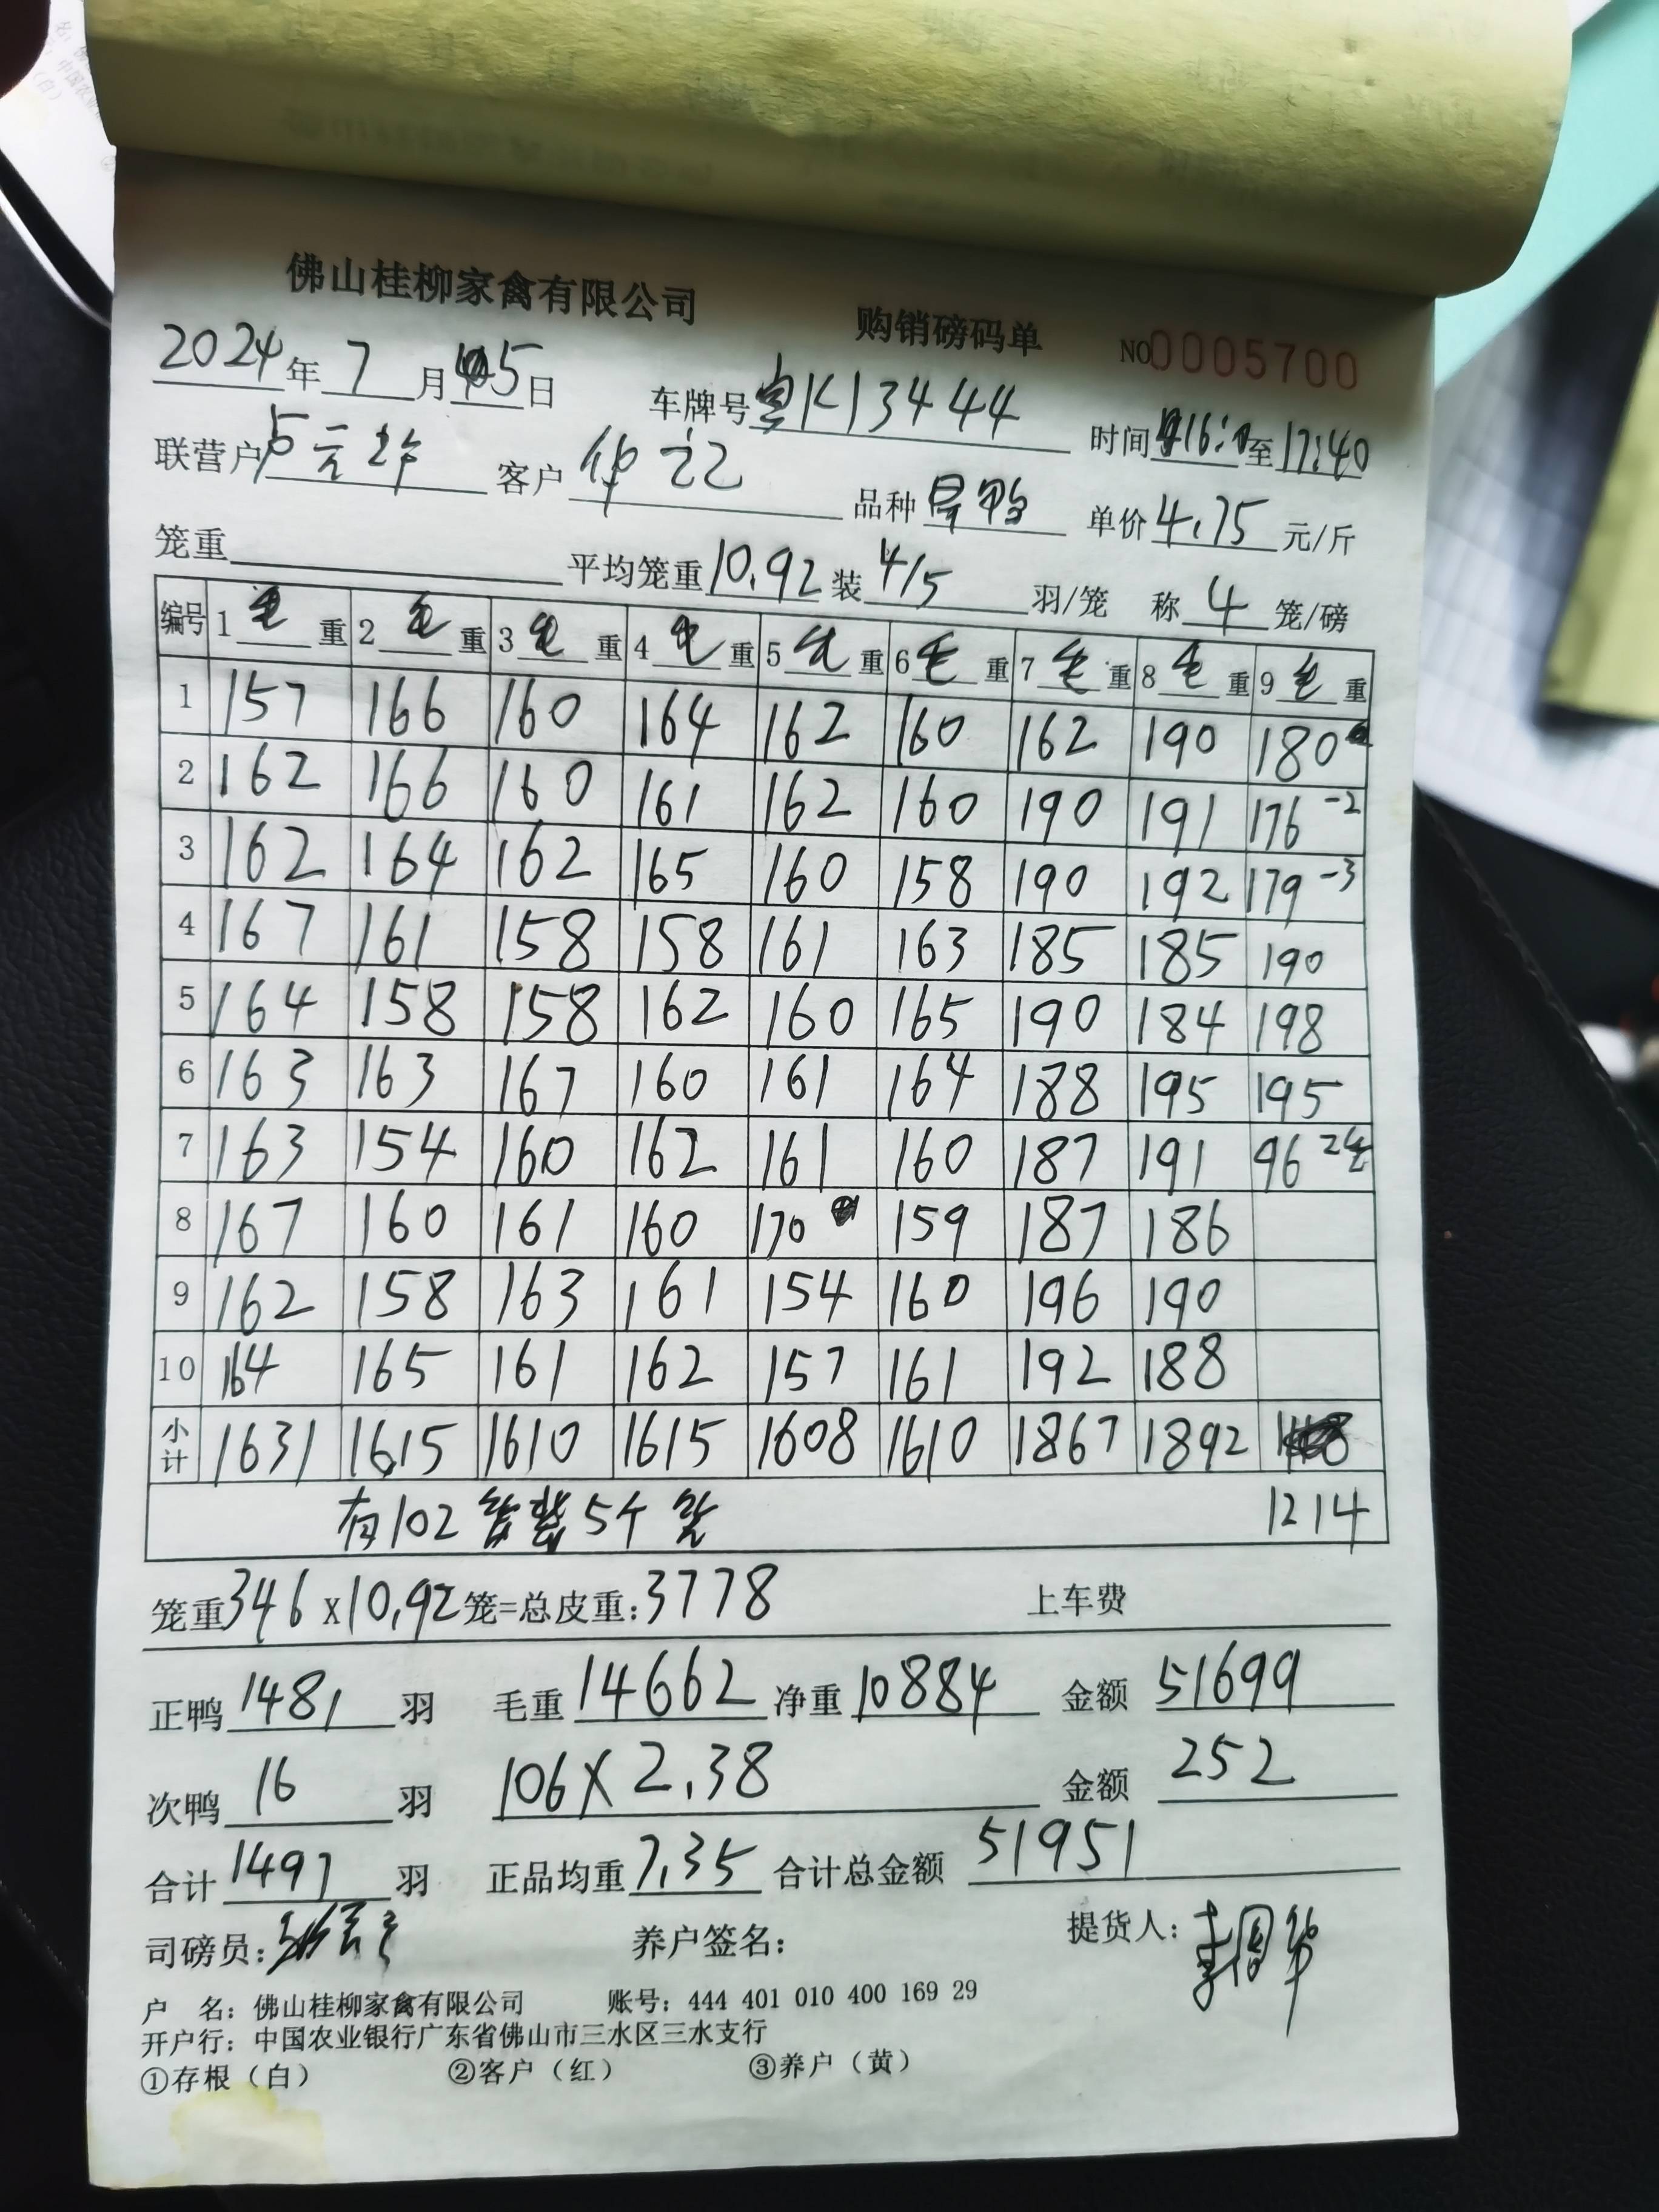 佛山桂柳家禽有限公司 购销磅码单 NO0005700
2024年7月5日 车牌号粤K13444 时间16: 至17:40
联营户 客户 华记 品种 鸭 单价4.75元/斤
笼重 平均笼重10.92装4/5羽/笼 称4笼/磅
编号 1毛重 2毛重 3毛重 4毛重 5毛重 6毛重 7毛重 8毛重 9毛重
1 157 166 160 164 162 160 162 190 180
2 162 166 160 161 162 160 190 191 176 -2
3 162 164 162 165 160 158 190 192 179 -3
4 167 161 158 158 161 163 185 185 190
5 164 158 158 162 160 165 190 184 198
6 163 163 167 160 161 164 188 195 195
7 163 154 160 162 161 160 187 191 96 2笼
8 167 160 161 160 170 159 187 186
9 162 158 163 161 154 160 196 190
10 164 165 161 162 157 161 192 188
小计 1631 1615 1610 1615 1608 1610 1867 1892
有102笼装5个笼 1214
笼重346x10.92笼=总皮重:3778 上车费
正鸭1481羽 毛重14662净重10884 金额51699
次鸭16羽 106X2.38 金额252
合计1497羽 正品均重7.35合计总金额51951
司磅员: 养户签名: 提货人:
户 名: 佛山桂柳家禽有限公司 账号: 444 401 010 400 169 29
开户行: 中国农业银行广东省佛山市三水区三水支行
①存根(白) ②客户(红) ③养户(黄)